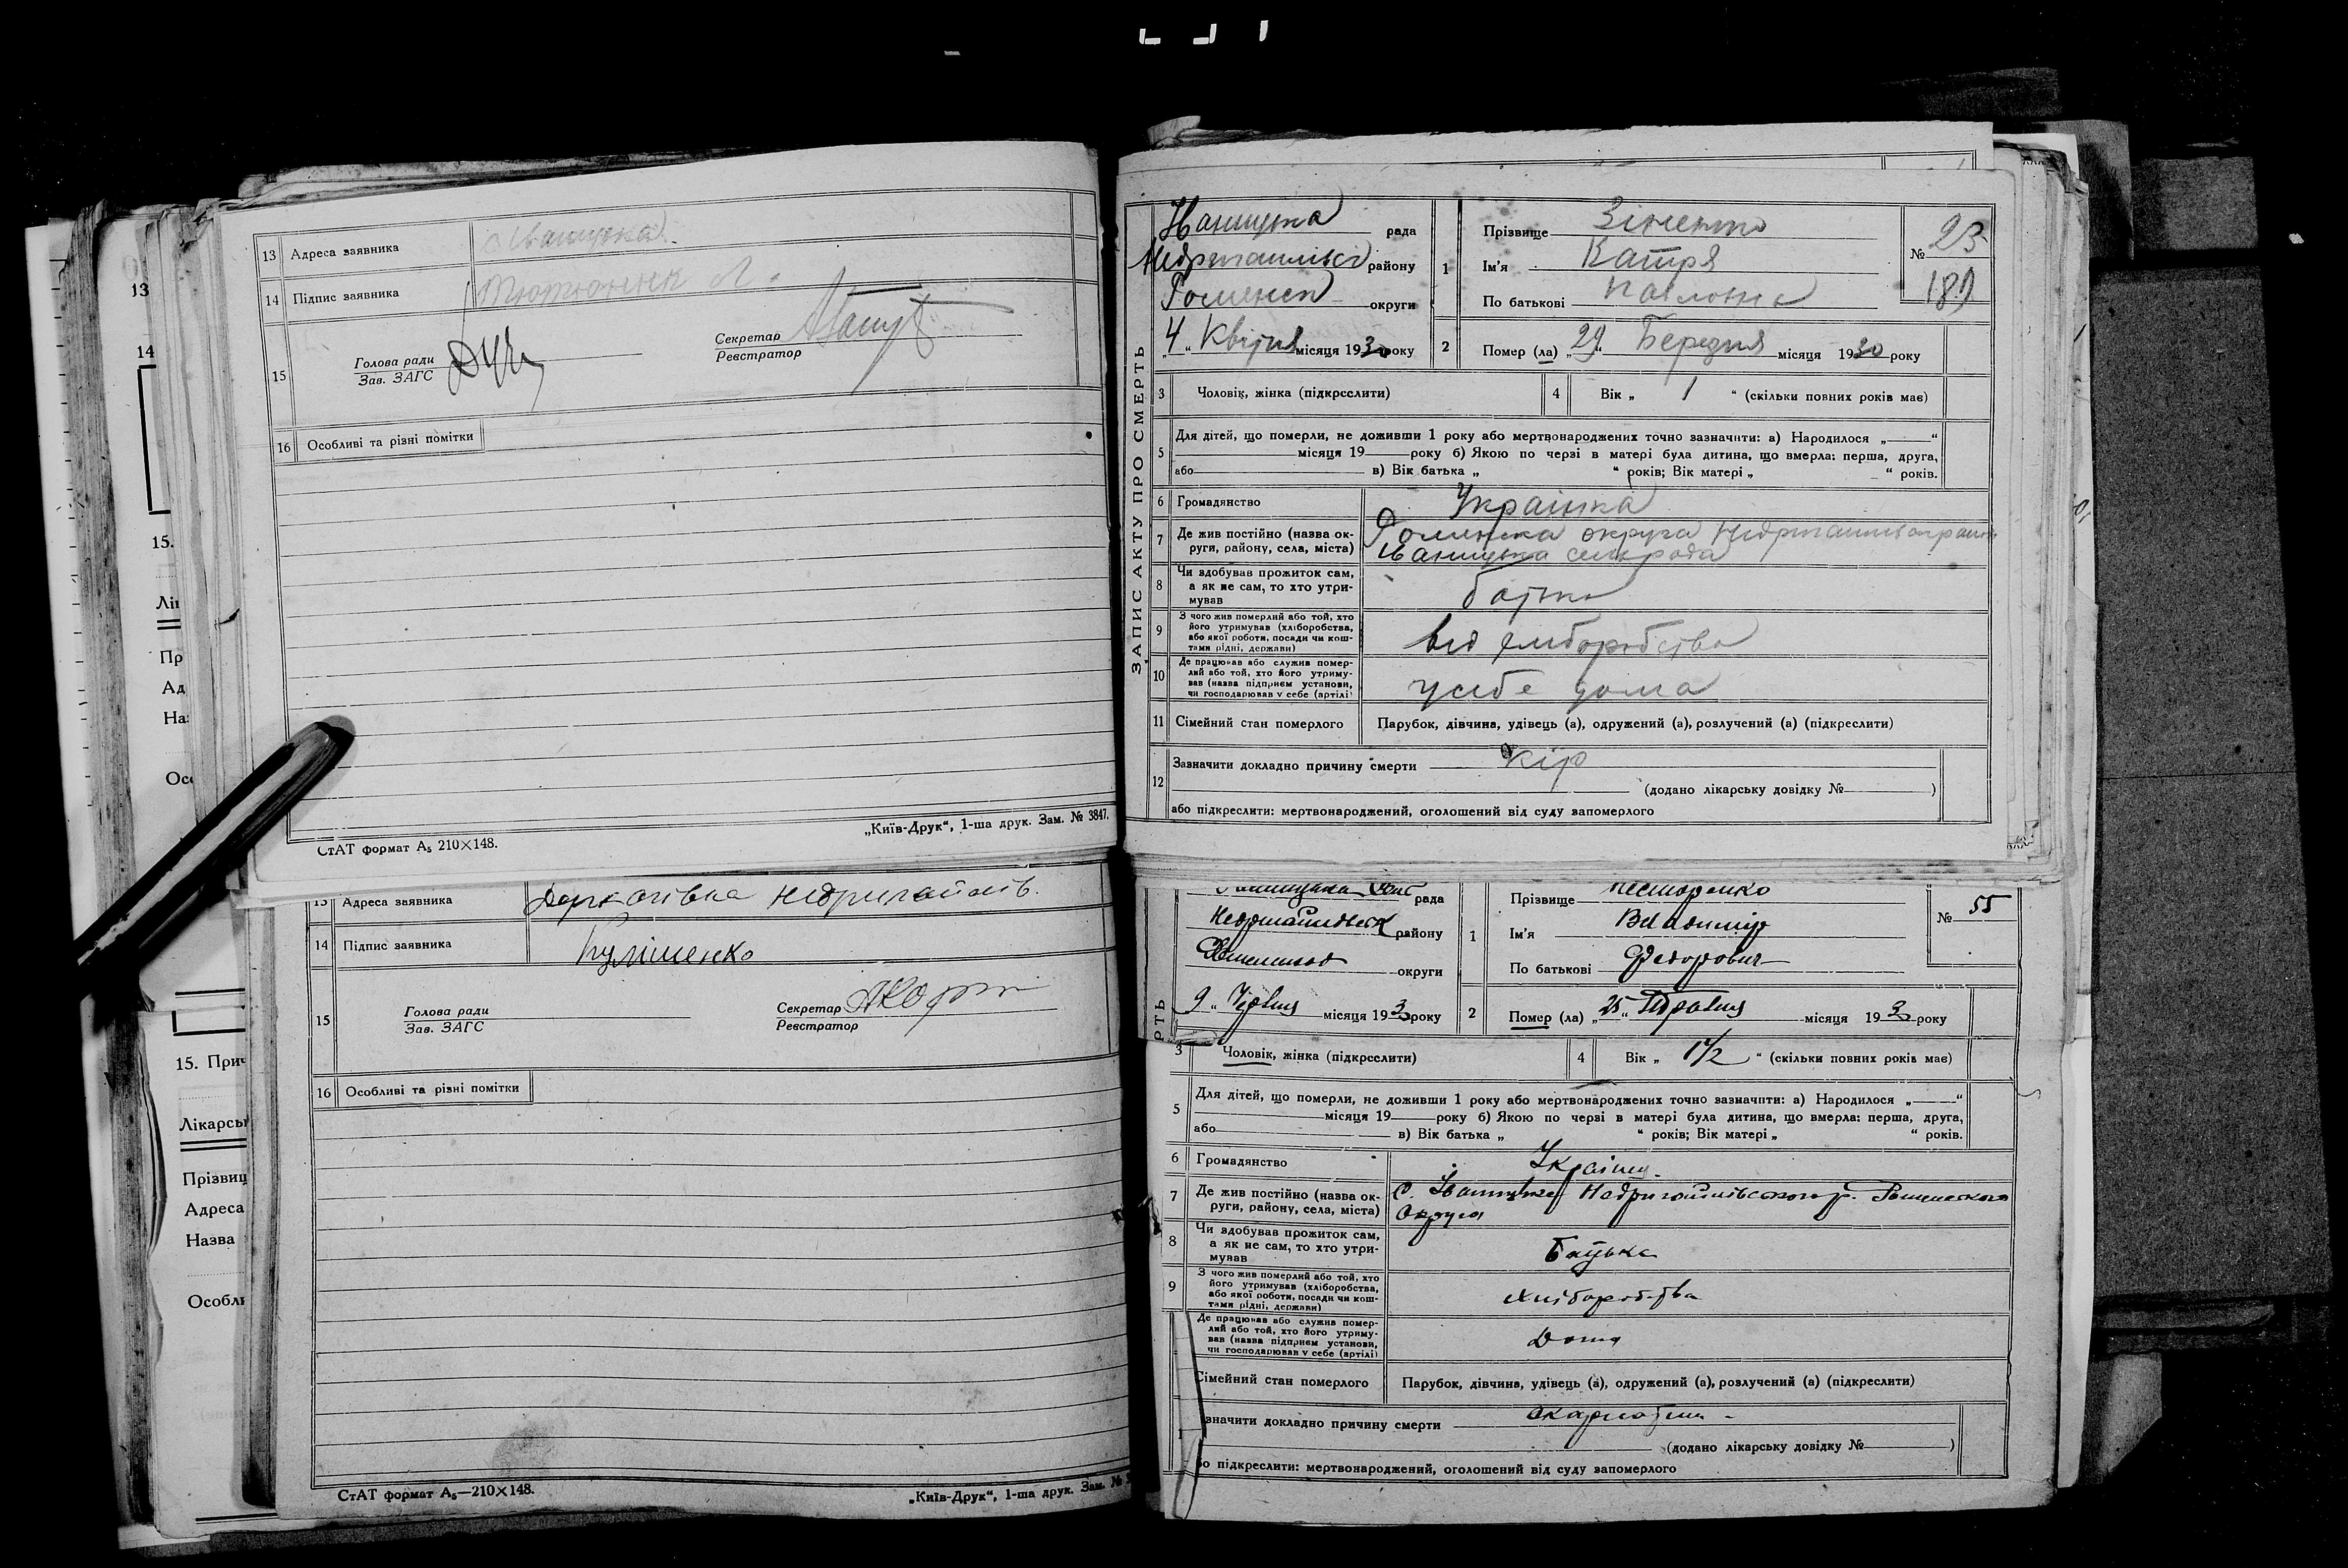 13 Адреса заявника
14 Підпис заявника
15 Голова ради
Зав. ЗАГС
Секретар
Реєстратор
16 Особливі та різні помітки
СтАТ формат А₅ 210×148.
„Київ-Друк“, 1-ша друк. Зам. № 3847.
13
14
15.
Лік
Пр
Ад
На
Осо
ЗАПИС АКТУ ПРО СМЕРТЬ
рада
району
округи
„4“ Квітня місяця 1930 року
1 Прізвище
Ім'я Катря
По батькові Павловна
№ 23
189
2 Помер (ла) „29“ Березня місяця 1930 року
3 Чоловік, жінка (підкреслити)
4 Вік „ 1 “ (скільки повних років має)
5 Для дітей, що померли, не доживши 1 року або мертвонароджених точно зазначити: а) Народилося „ “
місяця 19 року б) Якою по черзі в матері була дитина, що вмерла: перша, друга,
або в) Вік батька „ “ років; Вік матері „ “ років.
6 Громадянство Українка
7 Де жив постійно (назва ок-
руги, району, села, міста)
Роменська округа
8 Чи здобував прожиток сам,
а як не сам, то хто утри-
мував
батько
9 З чого жив померлий або той, хто
його утримував (хліборобства,
або якої роботи, посади чи кош-
тами рідні, держави)
від хліборобства
10 Де працював або служив помер-
лий або той, хто його утриму-
вав (назва підприєм установи,
чи господарював у себе (артілі)
у себе дома
11 Сімейний стан померлого Парубок, дівчина, удівець (а), одружений (а), розлучений (а) (підкреслити)
12 Зазначити докладно причину смерти кір
(додано лікарську довідку № )
або підкреслити: мертвонароджений, оголошений від суду запомерлого
13 Адреса заявника
14 Підпис заявника Куліменко
15 Голова ради
Зав. ЗАГС
Секретар
Реєстратор
16 Особливі та різні помітки
СтАТ формат А₅—210×148.
„Київ-Друк“, 1-ша друк. Зам. №
15. Прич
Лікарськ
Прізвищ
Адреса
Назва
Особли
РТЬ
рада
району
округи
9 “ Червня місяця 193 року
1 Прізвище Нестеренко
Ім'я Владимир
По батькові Федорович
№ 55
2 Помер (ла) „25“ Травня місяця 193 року
3 Чоловік, жінка (підкреслити)
4 Вік „ 1½ “ (скільки повних років має)
5 Для дітей, що померли, не доживши 1 року або мертвонароджених точно зазначити: а) Народилося „ “
місяця 19 року б) Якою по черзі в матері була дитина, що вмерла: перша, друга,
або в) Вік батька „ “ років; Вік матері „ “ років.
6 Громадянство
7 Де жив постійно (назва ок-
руги, району, села, міста)
Округа
8 Чи здобував прожиток сам,
а як не сам, то хто утри-
мував
Батько
9 З чого жив померлий або той, хто
його утримував (хліборобства,
або якої роботи, посади чи кош-
тами рідні, держави)
хліборобства
Де працював або служив помер-
лий або той, хто його утриму-
вав (назва підприєм установи,
чи господарював у себе (артілі)
Дома
Сімейний стан померлого Парубок, дівчина, удівець (а), одружений (а), розлучений (а) (підкреслити)
значити докладно причину смерти скарлатина
(додано лікарську довідку № )
бо підкреслити: мертвонароджений, оголошений від суду запомерлого